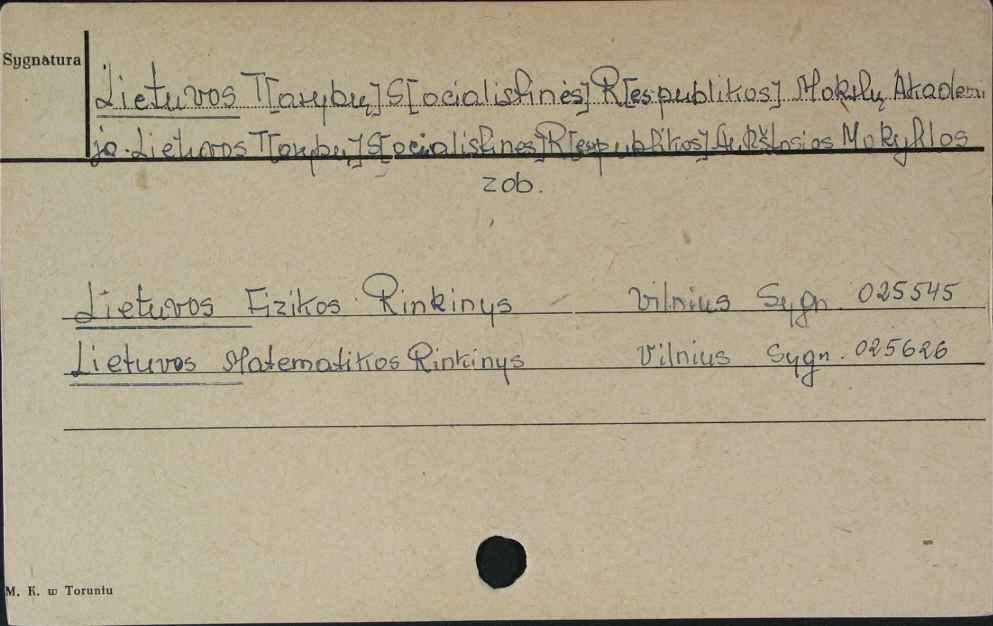 Sygnatura
Lietuvos T[arybų] S[ocialistinės] R[espublikos] Mokslų Akademi
ja. Lietuvos T[arybų] S[ocialistines] R[espublikos] Aukštosios Mokyklos
zob.
Lietuvos Fizikos Rinkinys Vilnius Sygn. 025545
Lietuvos Matematikos Rinkinys Vilnius Sygn. 025626
M. K. w Toruniu